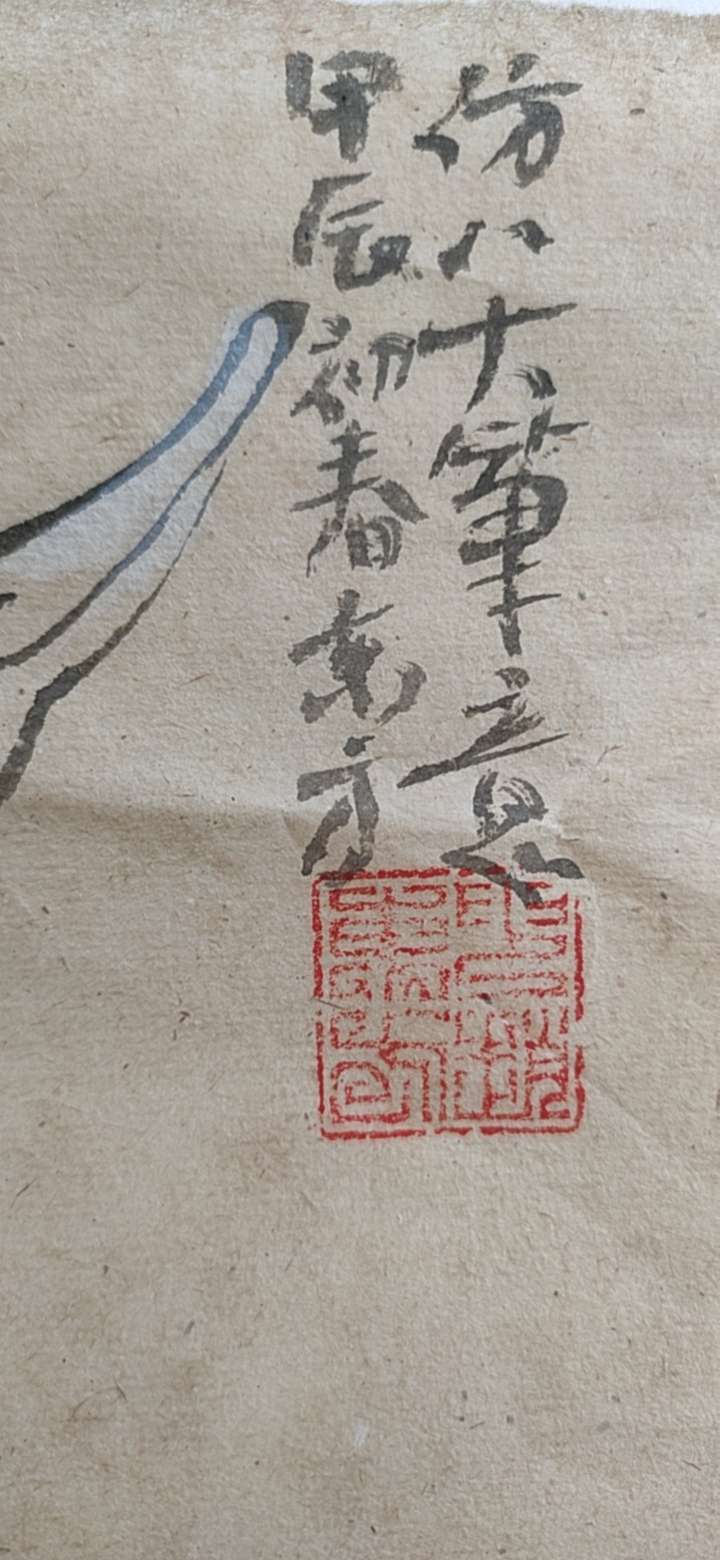 仿八大筆意
甲辰初春东方